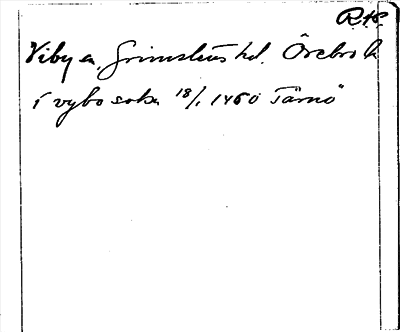 R.18.
Viby sn, Grimstens hd. Örebro l.
i vybo sokn 18/1 1450 Tärnö